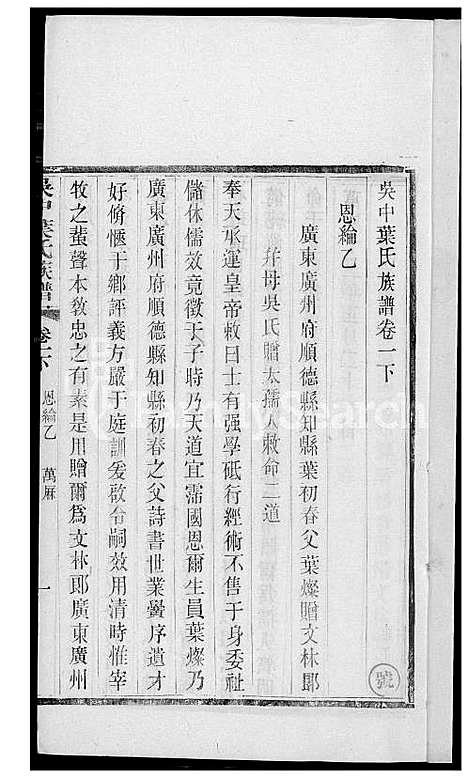 吳中葉氏族譜卷一下
恩綸乙
廣東廣州府順德縣知縣葉初春父葉燦贈文林郎
幷母吳氏贈太孺人敕命二道
奉天承運皇帝敕曰士有强學砥行經術不售于身委祉
儲休儒效竟徵于子時乃天道宜霈國恩爾生員葉燦乃
廣東廣州府順德縣知縣初春之父詩書世業黌序遺才
好脩愜于鄉評義方嚴于庭訓爰啟令嗣效用清時惟宰
牧之蜚聲本敎忠之有素是用贈爾爲文林郎廣東廣州
吳中葉氏族譜 卷一下 恩綸乙 萬厤 一
號
FamilySearch